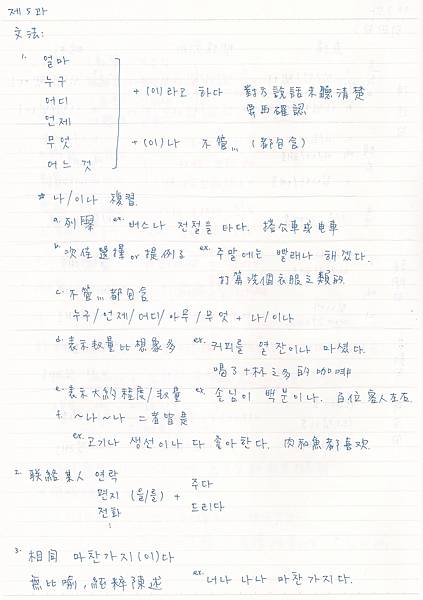 제5과
文法:
1. 얼마
누구
어디 +(이)라고 하다 對方說話未聽清楚
언제 要再確認
무엇 +(이)나 不管… (都包含)
어느 것
* 나/이나 複習
a. 列舉 ex. 버스나 전철을 타다. 搭公車或電車
b. 次佳選擇 or 提例子 ex. 주말에는 빨래나 해겠다.
打算洗個衣服之類的
c. 不管…都包含
누구/언제/어디/아무/무엇 + 나/이나
d. 表示數量比想像多 ex. 커피를 열 잔이나 마셨다.
喝了十杯之多的咖啡
e. 表示大約程度/數量 ex. 손님이 백 분이나. 百位客人左右
f. ~나~나 二者皆是
ex. 고기나 생선이나 다 좋아한다. 肉和魚都喜歡
2. 聯絡某人 연락 주다
편지 (을/를) +
전화 드리다
:
3. 相同 마찬가지(이)다
無比喻,純粹陳述 ex. 너나 나나 마찬가지다.